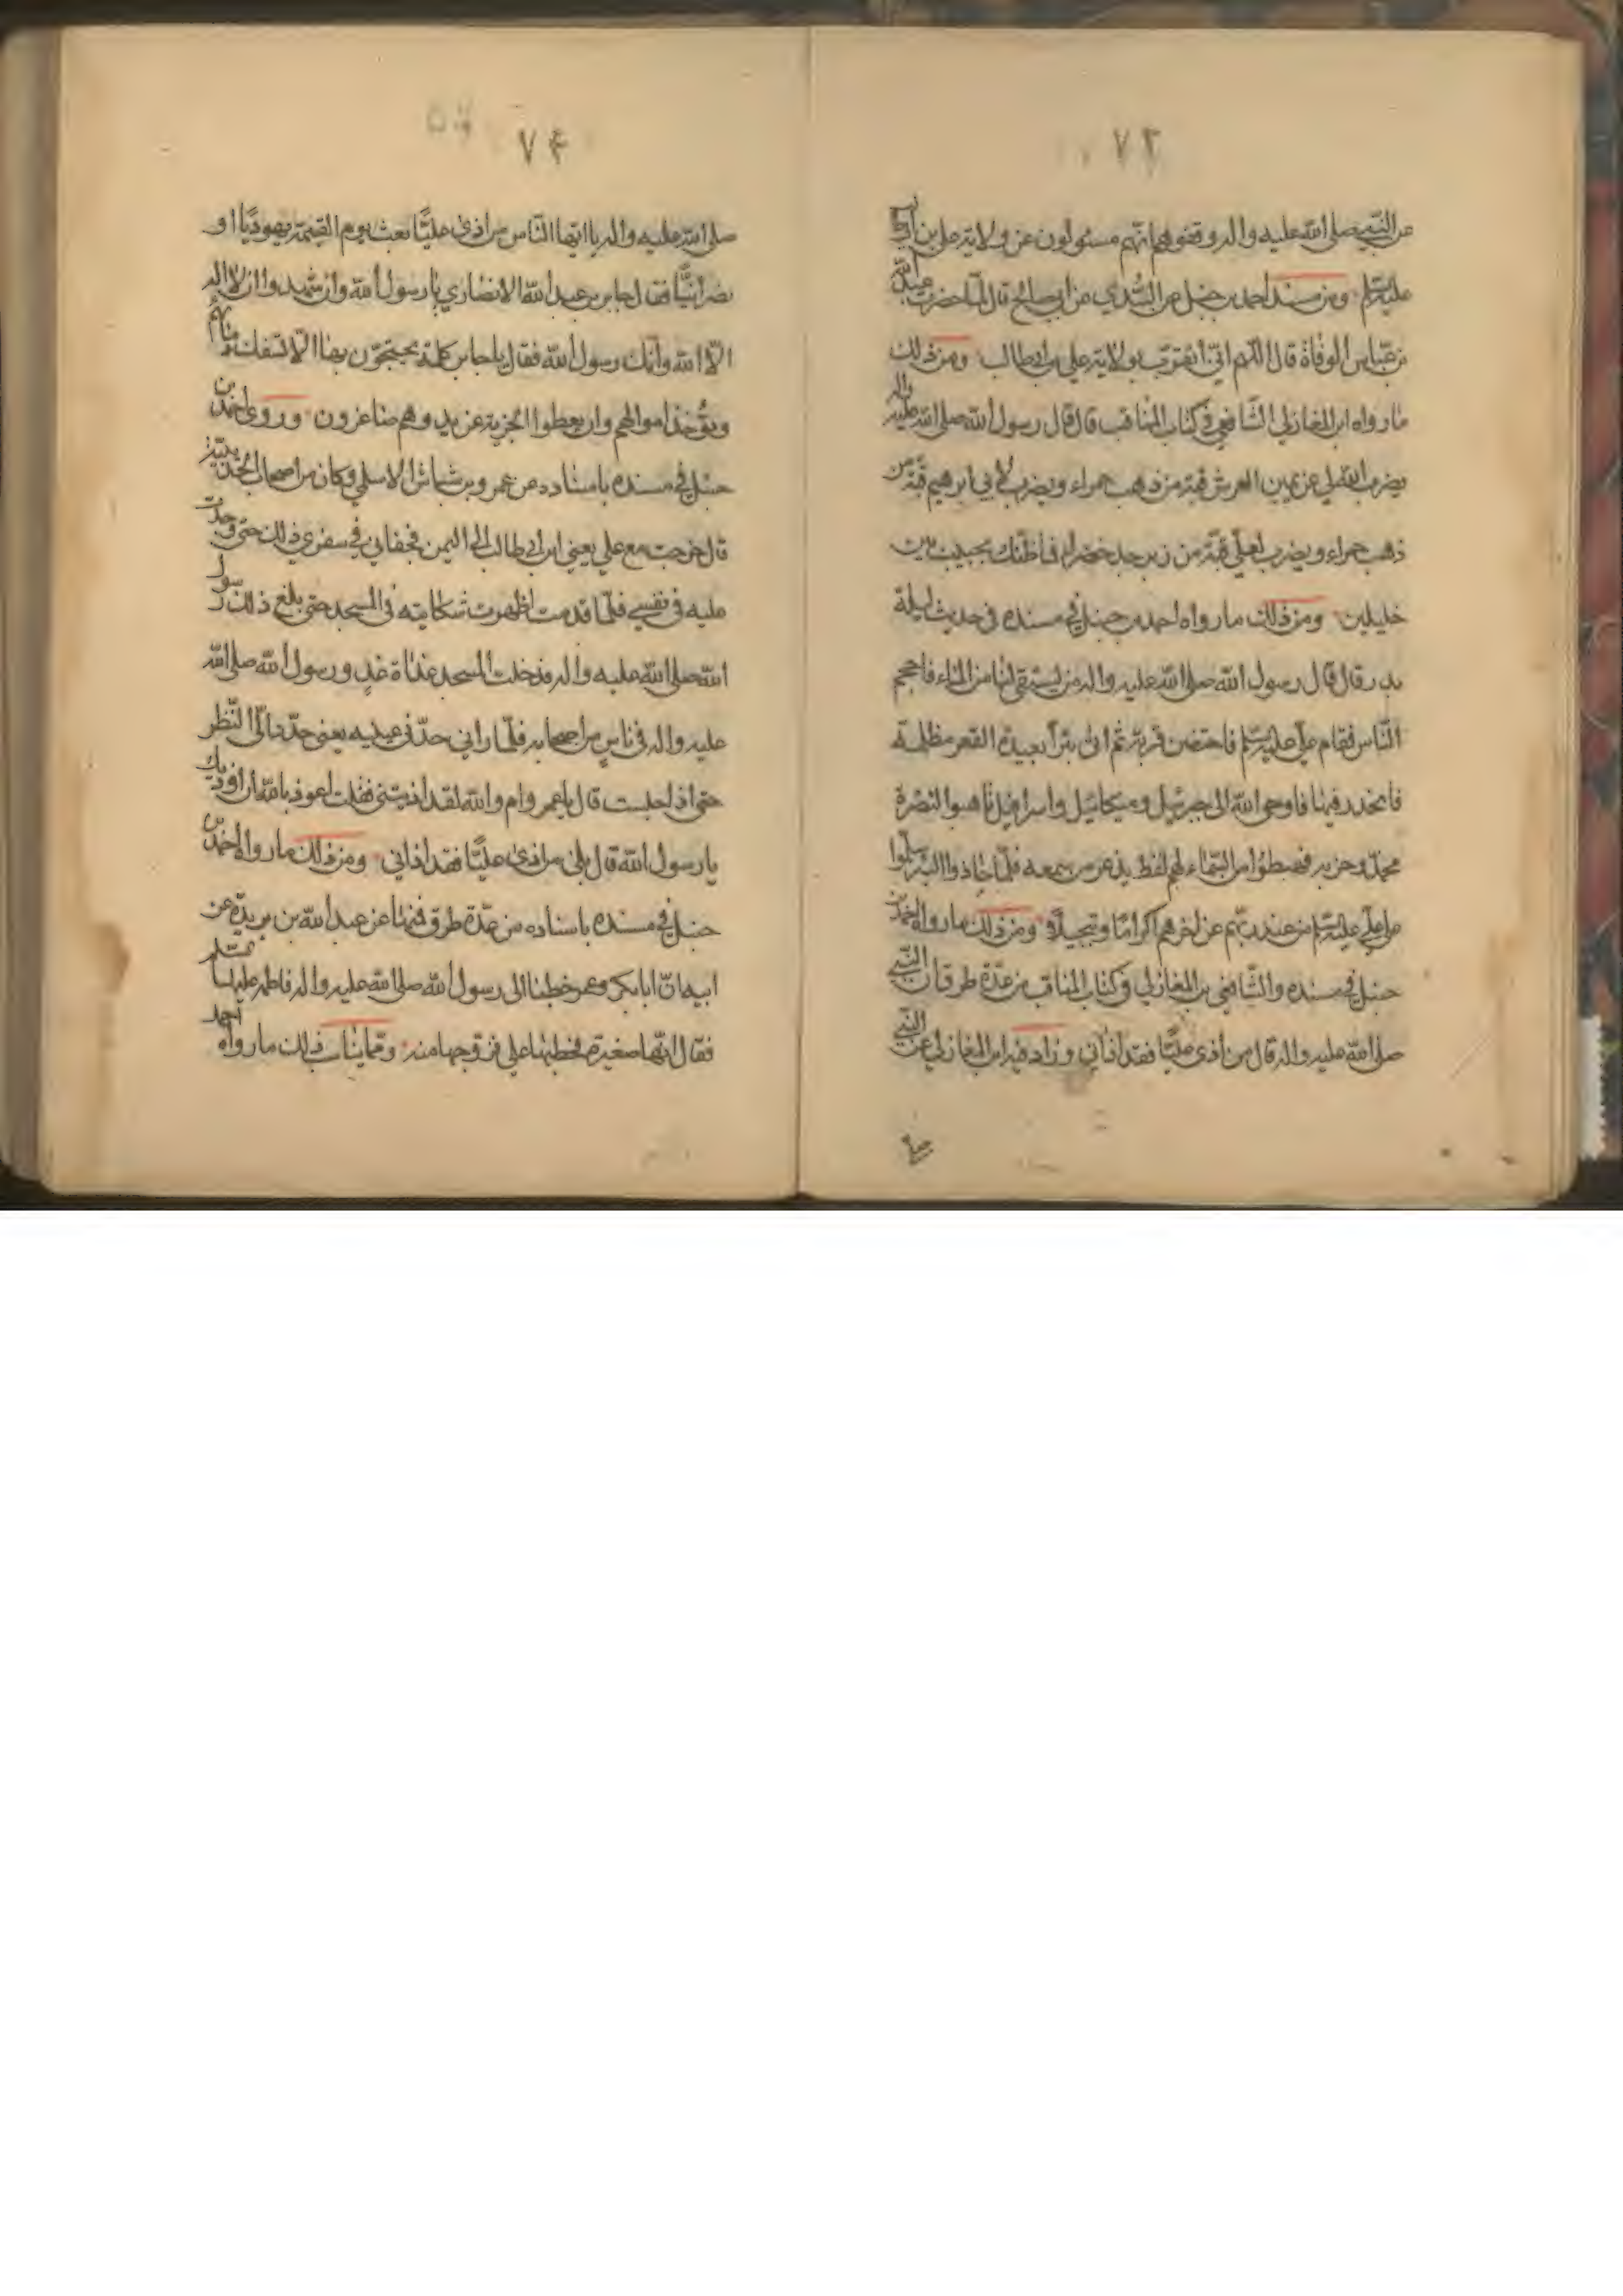 ٧٣
عن النبي صلى الله عليه واله وقفوهم انهم مسئولون عن ولاية علي بن ابي طالب
عليه السلم ومن مسند احمد بن حنبل عن السدي عن ابي صالح قال لما حضرت عبد الله
بن عباس الوفاة قال اللهم اني اتقرب بولاية علي بن ابي طالب ومن ذلك
ما رواه ابن المغازلي الشافعي في كتاب المناقب قال قال رسول الله صلى الله عليه واله
يضرب الله لي عن يمين العرش قبة من ذهب حمراء ويضرب لأبي ابرهيم قبة من
ذهب حمراء ويضرب لعلي قبة من زبرجد خضراء فما ظنك بحبيب بين
خليلين ومن ذلك ما رواه احمد بن حنبل في مسنده في حديث ليلة
بدر قال قال رسول الله صلى الله عليه واله من يستقي لنا من الماء فاحجم
الناس فقام علي عليه السلم فاحتضن قربة ثم اتى بئرا بعيدة القعر مظلمة
فانحدر فيها فاوحى الله الى جبرئيل وميكائيل واسرافيل تاهبوا لنصرة
محمد وحزبه فهبطوا من السماء لهم لفظ يذعر من سمعه فلما حاذوا البئر سلموا
على علي عليه السلم من عند ربهم عن اخرهم اكراما وتبجيلا ومن ذلك ما رواه احمد بن
حنبل في مسنده والشافعي بن المغازلي في كتاب المناقب من عدة طرق ان النبي
صلى الله عليه واله قال من اذى عليا فقد اذاني وزاد فيه ابن المغازلي عن النبي
صلى
٧٤
صلى الله عليه واله يا ايها الناس من اذى عليا بعث يوم القيمة يهوديا او
نصرانيا فقال جابر بن عبد الله الانصاري يا رسول الله وان شهد وان لا اله
الا الله وانك رسول الله فقال يا جابر كلمة يحتجزون بها الا تسفك دماؤهم
ويؤخذ اموالهم وان يعطوا الجزية عن يد وهم صاغرون وروى احمد بن
حنبل في مسنده باسناده عن عمرو بن شاش الاسلمي وكان من اصحاب الحديبية
قال خرجت مع علي يعني ابن ابي طالب الى اليمن فجفاني في سفري ذلك حتى وجدت
عليه في نفسي فلما قدمت اظهرت شكايته في المسجد حتى بلغ ذلك رسول
الله صلى الله عليه واله فدخلت المسجد غداة غد ورسول الله صلى الله
عليه واله في ناس من اصحابه فلما راني حدني عينيه يعني حدد الي النظر
حتى اذا جلست قال يا عمرو ام والله لقد اذيتني فقلت اعوذ بالله ان اوذيك
يا رسول الله قال بلى من اذى عليا فقد اذاني ومن ذلك ما رواه احمد بن
حنبل في مسنده باسناده من عدة طرق فمنها عن عبد الله بن بريدة عن
ابيه ان ابا بكر وعمر خطبا الى رسول الله صلى الله عليه واله فاطمة عليها السلم
فقال انها صغيرة فخطبها علي فزوجها منه ومما يناسب ذلك ما رواه احمد